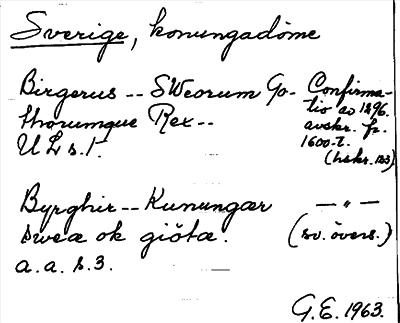 Sverige, konungadöme
Birgerus -- SWeorum Go-
thorumque Rex --
UL s.1.
Confirma-
tio av 1296.
avskr. fr.
1600-t.
(hskr. B3)
Byrghir -- Kunungær
swea ok giöta.
a.a. s.3.
— " —
(sv. övers.)
G.E. 1963.